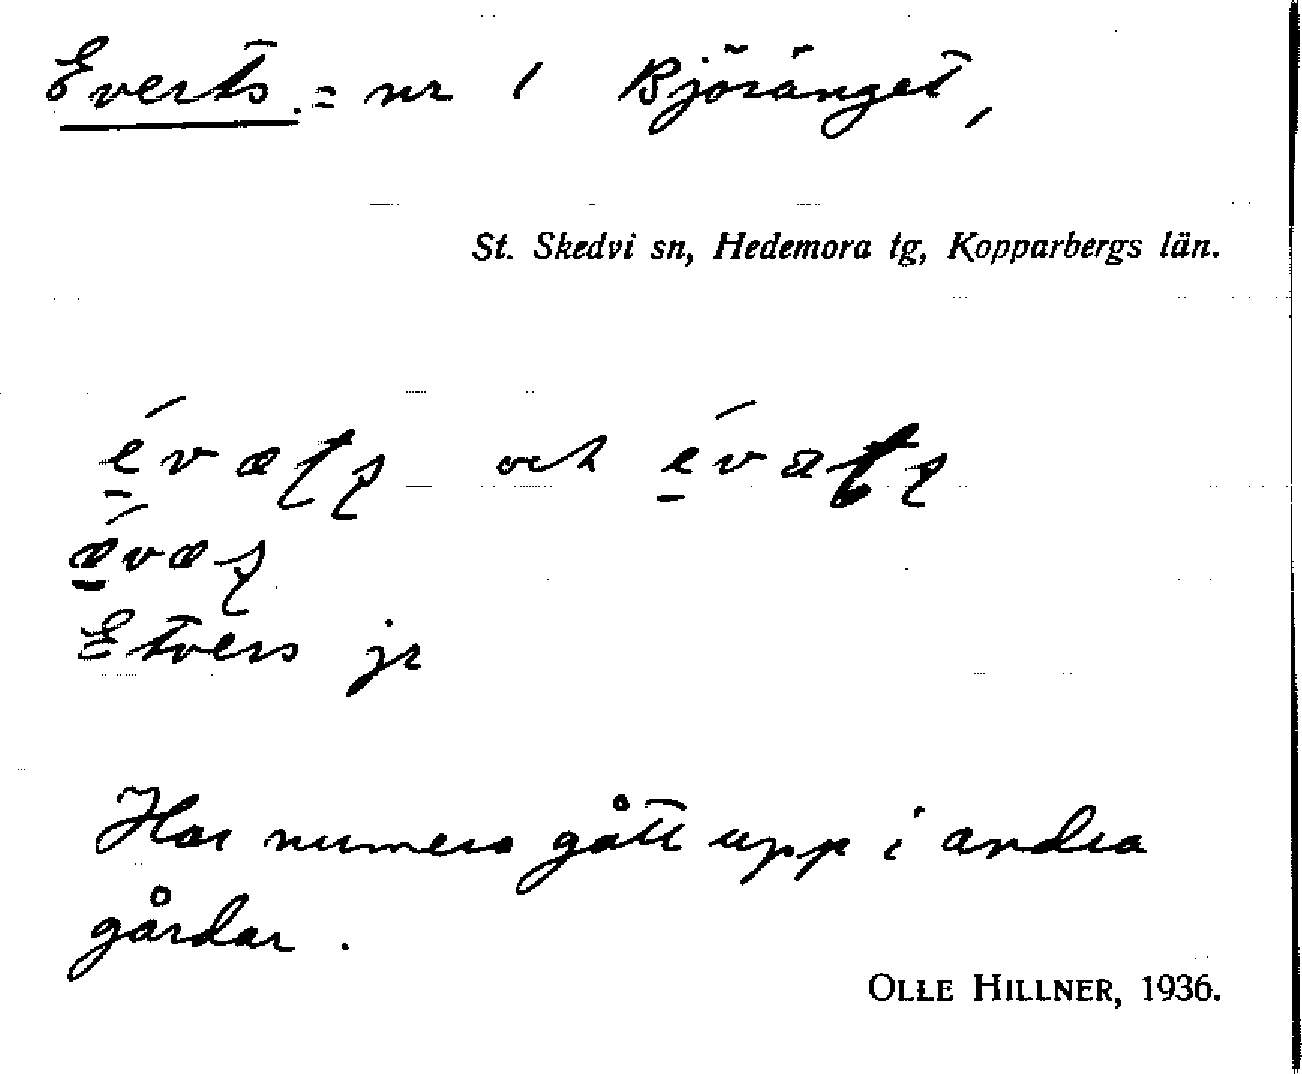 Everts. = nr 1 Björänget,
St. Skedvi sn, Hedemora tg, Kopparbergs län.
och
Etvers jr
Har numera gått upp i andra
gårdar.
OLLE HILLNER, 1936.